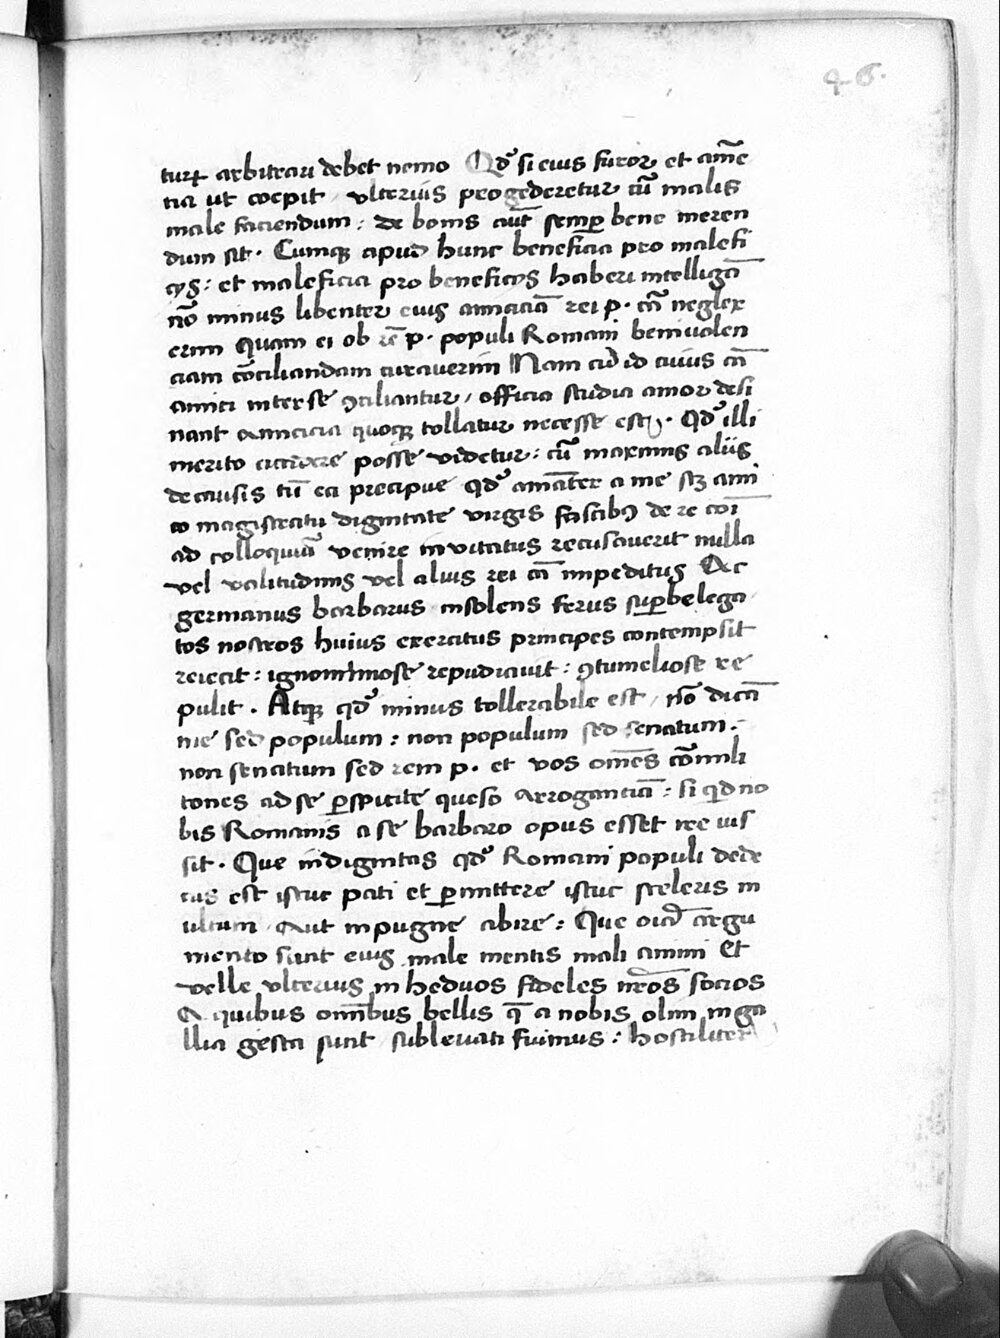 46.
turꝝ arbitrari debet nemo Qd̉ si eius furor et amē
tia ut coepit, ulterius progederetur cū malis
male faciendum: de bonis aut̄ semꝑ bene meren
dum sit. Cumqꝫ apud hunc beneficia pro malefi
cijs: et maleficia pro beneficijs haberi intelligā
nō minus libenter eius amicitiā rei p. cā neglex
erim quam ei ob rē p. populi Romani beniuolen
ciam cōciliandam curauerim Nam cū id cuius cā
amici inter se ꝯciliantur, officia studia amor desi
nant amicicia quoqꝫ tollatur necesse est. Qd̉ illi
merito accidere posse videtur: cū maximis aliis
de causis tū ea precipue qd̉ amāter a me sꝫ ami
co magistratu dignitate virgis fascibꝰ de re cōi
ad colloquiū venire invitatus recusaverit nulla
vel valitudinis vel alius rei cā impeditus Ac
germanus barbarus insolens ferus suꝑbe lega
tos nostros huius exercitus principes contempsit
reiecit: ignominiose repudiavit: ꝯtumeliose re
pulit. Atqꝫ qd̉ minus tollerabile est, nō dicā
me sed populum: non populum sed senatum.
non senatum sed rem p. et vos omēs cōmili
tones ad se ꝑspicite queso arrogantiā: si qd no
bis Romanis a se barbaro opus esset me uis
sit. Que indignitas qd̉ Romani populi dede
cus est istuc pati et ꝑmittere istuc sceleris in
ultum aut inpugne abire: Que argu
mento sunt eius male mentis mali animi Et
velle ulterius in heduos fideles nr̄os socios
A quibus omībus bellis q̄ a nobis olim in ga
llia gesta sunt sublevati fuimus: hostiliter